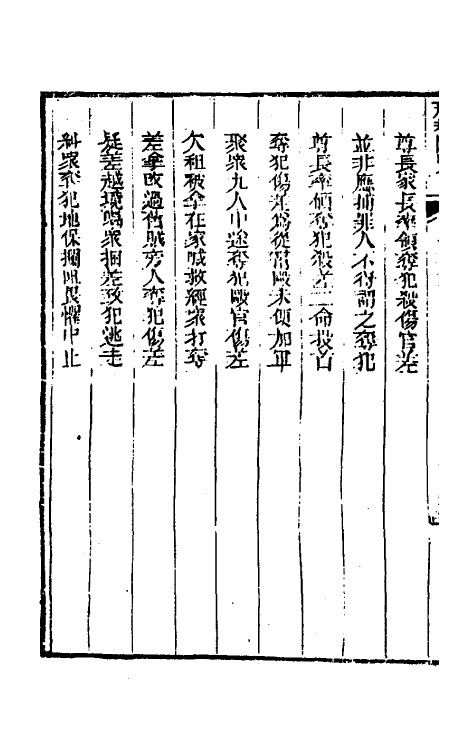 尊長家長率領奪犯殺傷官差
並非應捕罪人不得謂之奪犯
尊長率領奪犯殺差二命投首
奪犯傷差為從當毆未便加軍
聚眾九人中途奪犯毆官傷差
欠租被拿在家喊救經眾打奪
差拿改過竊賊旁人奪犯傷差
疑差越境喝眾捆差致犯逃走
糾眾奪犯地保攔阻畏懼中止